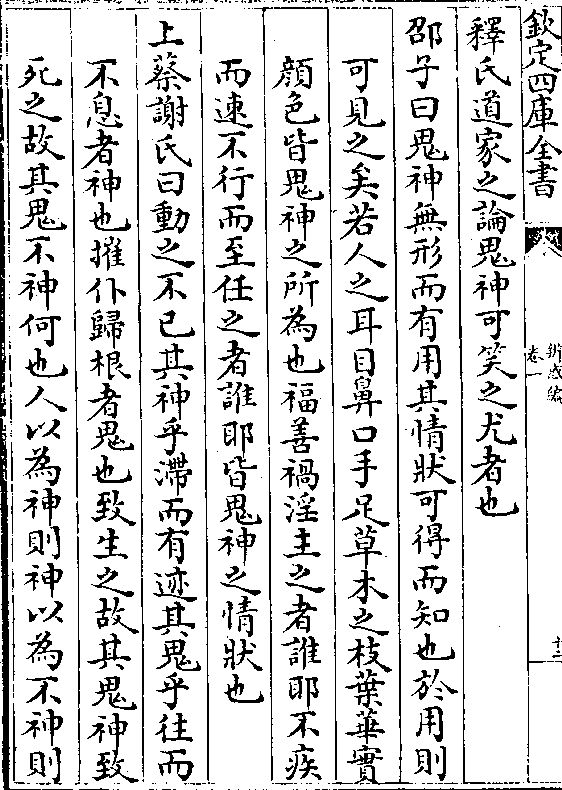 欽定四庫全書
辨惑編
卷一
十二
釋氏道家之論鬼神可笑之尤者也
邵子曰鬼神無形而有用其情狀可得而知也於用則
可見之矣若人之耳目鼻口手足草木之枝葉華實
顔色皆鬼神之所為也福善禍淫主之者誰耶不疾
而速不行而至任之者誰耶皆鬼神之情狀也
上蔡謝氏曰動之不已其神乎滯而有迹其鬼乎往而
不息者神也摧仆歸根者鬼也致生之故其鬼神致
死之故其鬼不神何也人以為神則神以為不神則